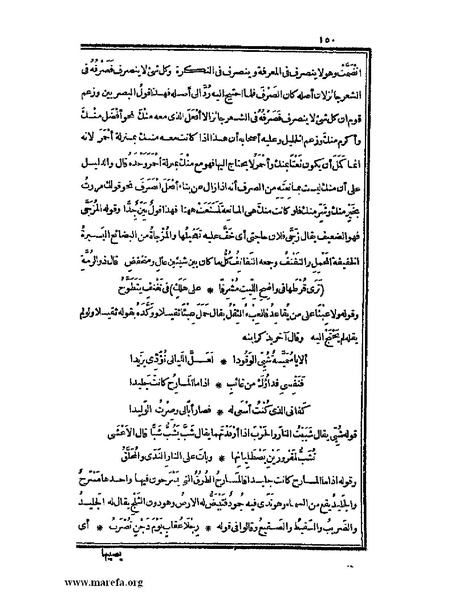 ١٥٠
انضمّت وهو لا ينصرف فى المعرفة وينصرف فى النكرة وكل شئ لا ينصرف فصرفه فى
الشعر جائز لان أصله كان الصرف فلما احتيج اليه رد الى أصله فهذا قول البصريين وزعم
قوم ان كل شئ لا ينصرف فصرفه فى الشعر جائز الا أفعل الذى معه منك نحو أفضل منك
وأكرم منك وزعم الخليل وعليه أصحابه أن هذا اذا كانت معه منك بمنزلة أحمر لانه
انما كمل أن يكون نعتا بمنك وأحمر لا يحتاج اليها فهو مع منك بمنزلة أحمر وحده قال والدليل
على أن منك ليست بمانعته من الصرف أنه اذا زال عن بناء أفعل انصرف نحو قولك مررت
بخير منك وشر منك فلو كانت منك هى المانعة لمنعت ههنا فهذا قول بين جدا وقوله المزجى
فهو الضعيف يقال زجى فلان حاجتى أى خف عليه تعجيلها والمزجاة من البضائع اليسيرة
الخفيفة المحمل والنفنف وجمعه النفانف كل ما كان بين شيئين عال ومنخفض قال ذو الرمة
(ترى قرطها فى واضح الليت مشرفا * على هلك فى نفنف يتطوح
وقوله ولا عبئا على من يقاعد فالعبء الثقل يقال حمل عبئا ثقيلا ووكده بقوله ثقيلا ولو لم
يقله لم يحتج اليه وقال آخر يذكر ابنه
ألا يا سمية شبى الوقودا * لعل الليالى تؤدى يزيدا
فنفسى فداؤك من غائب * اذا ما المسارح كانت جليدا
كفانى الذى كنت أسعى له * فصار أبا لى وصرت الوليدا
قوله شبى يقال شببت النار والحرب اذا أوقدتهما يقال شب يشب شبا قال الاعشى
تشب لمقرورين يصطليانها * وبات على النار الندى والمحلق
وقوله اذا ما المسارح كانت جليدا فالمسارح الطرق التى يسرحون فيها واحدها مسرح
والجليد يقع من السماء وهو ندى فيه جمود فتبيض له الارض وهو دون الثلج يقال له الجليد
والضريب والسقيط والصقيع وقالوا فى قوله * رجلا عقاب يوم دجن تضرب * أى
يصيبها
www.marefa.org